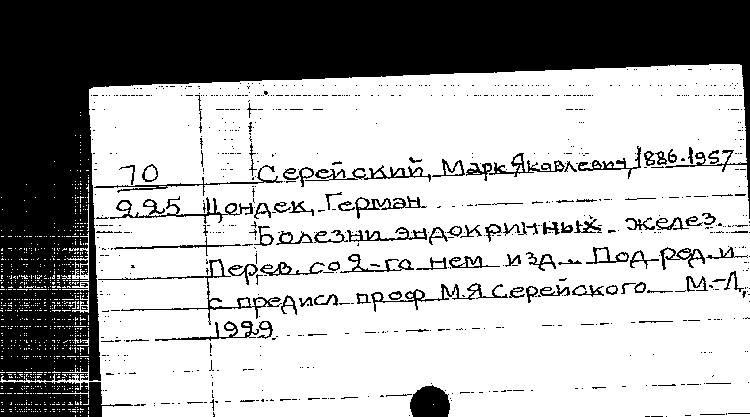 70 Серейский, Марк Яковлевич, 1886-1957
225 Цондек, Герман
Болезни эндокринных желез.
Перев. со 2-го нем. изд. Под ред. и
с предисл. проф. М.Я. Серейского. М.-Л.,
1929